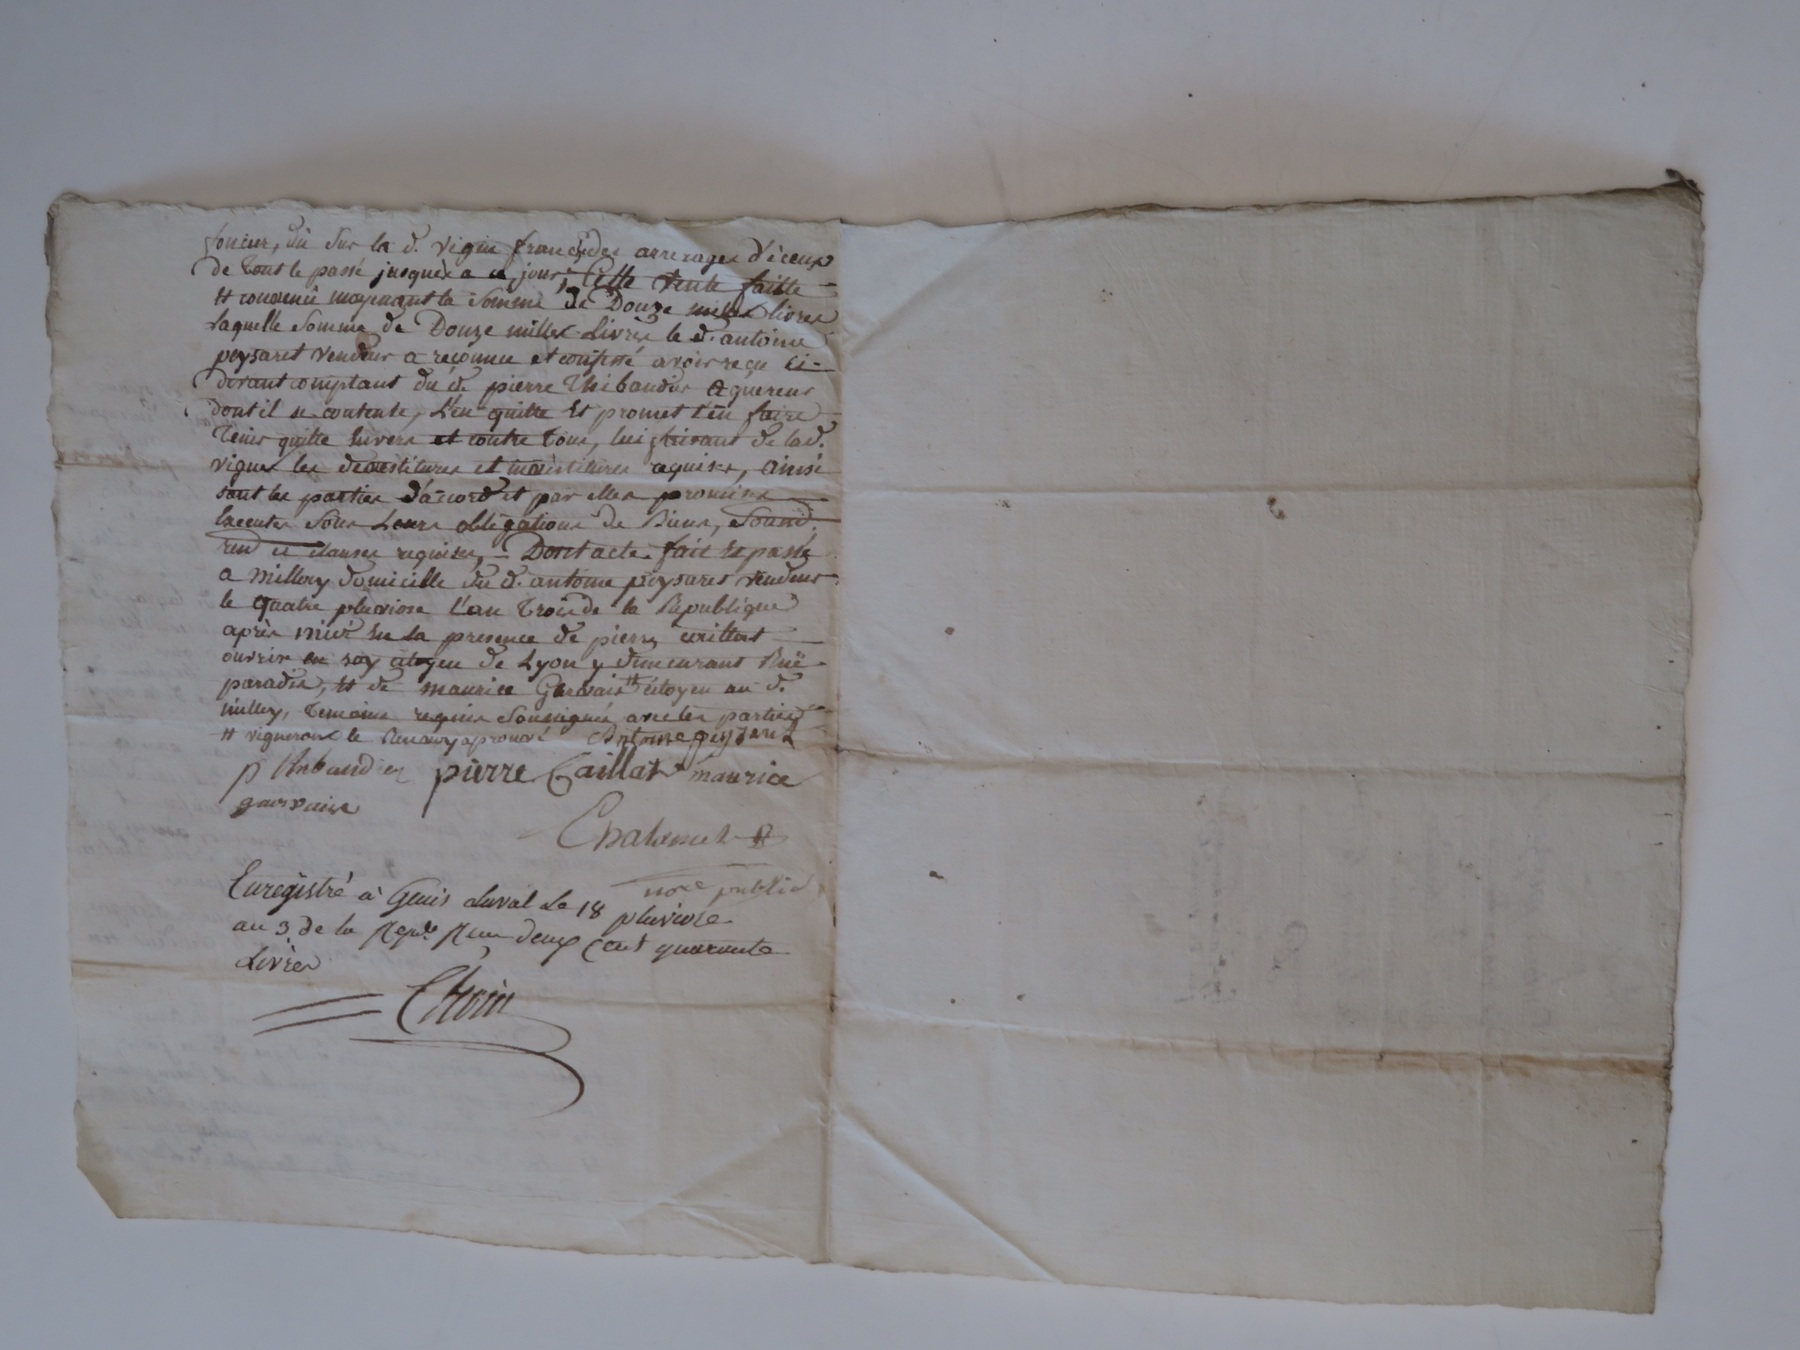 foncier, du sur la d. vigne franche des arrerages d'iceux
de tout le passé jusques a ce jour, Cette vente faitte
et convenue moyenant la somme de Douze milles livres
Laquelle somme de Douze milles Livres le d. antoine
peysaret vendeur a reconnu et confessé avoir reçu ci-
devant comptant du d. pierre Thibaudier aquereur
dont il se contente, l'en quitte et promet l'en faire
tenir quitte envers et contre tous, lui faisant de lad.
vigne les devestitures et investitures requises, ainsi
sont les parties d'accord et par elles promis
Executer sous Leurs obligations de Biens, soumis.
ren.d et clauses requises, Dont acte fait et passé
a millery domicille du d. antoine peysaret vendeur
le quatre pluviose l'an trois de la Republique
après midi en la presence de pierre caillat
ouvrier en soy citoyen de Lyon y demeurant Ruë
paradis, et de maurice Gervais # citoyen au d.
millery, temoins requis soussignés avec les parties
# vigneron le renvoy aprouvé Antoine peysaret
p thibaudier pierre Caillat maurice
gairvaise
Chalamel
no.re public
Enregistré à Genis Laval Le 18 pluviose
an 3 de la Rep.e Reçu deux cent quarante
Livres